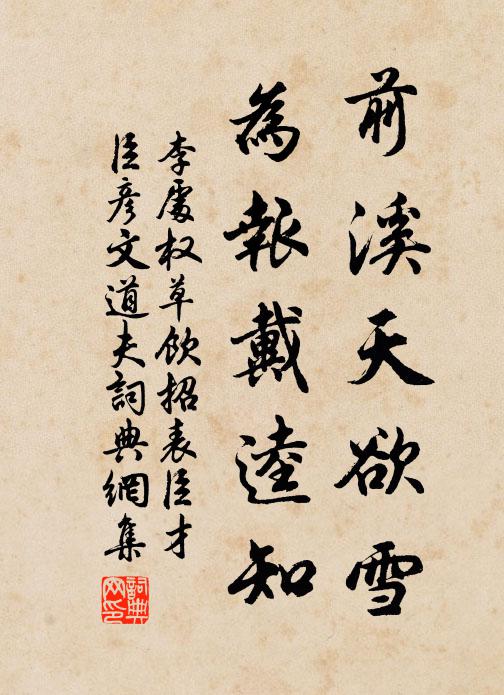 前溪天欲雪
為報戴逵知
李處权草飲招表臣才
臣彥文道夫詞典網集
詞典網印